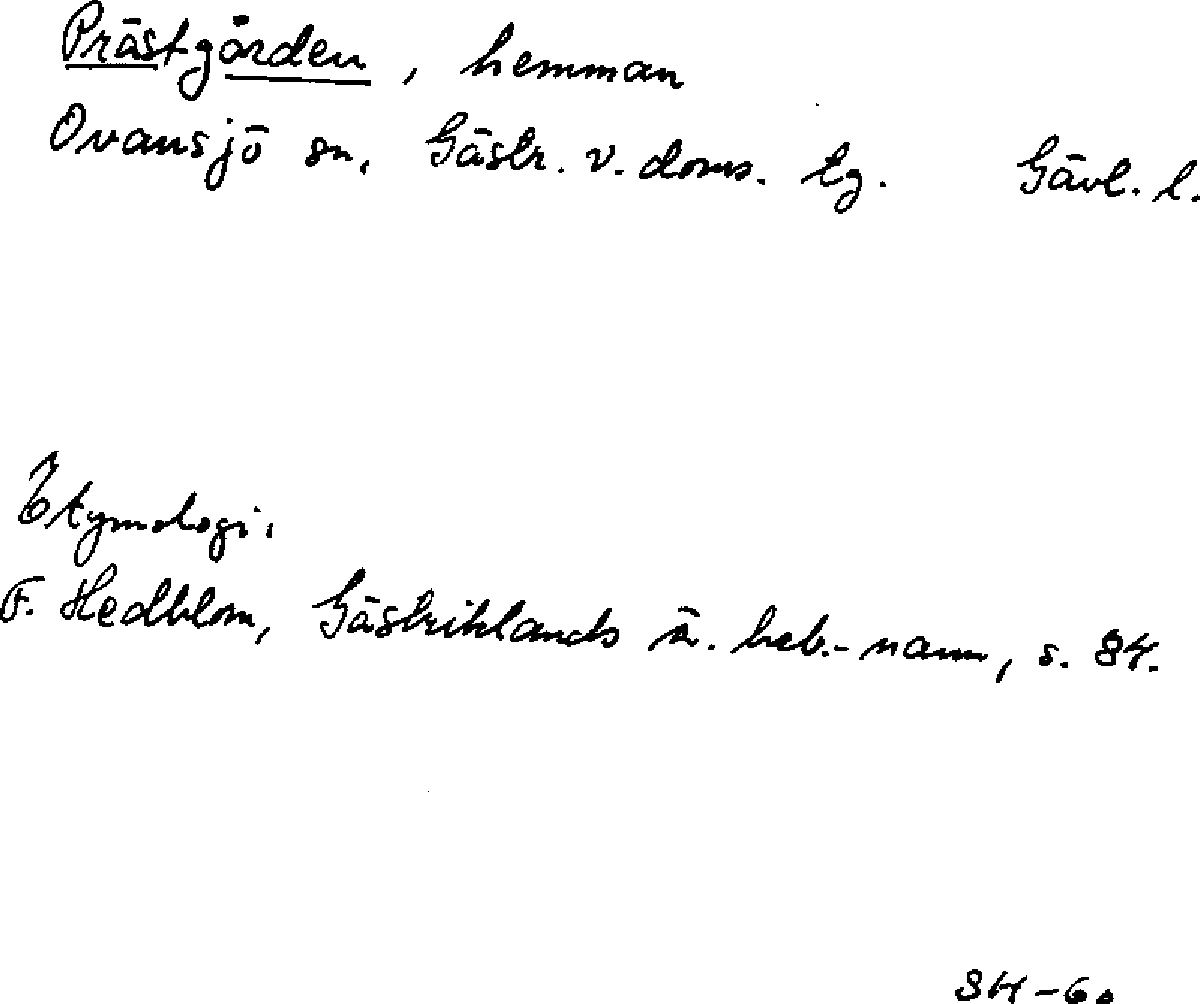 Prästgården, hemman
Ovansjö sn. Gästr. v. doms. tg. Gävl. l.
Etymologi.
F. Hedblom, Gästriklands ä. beb.-namn, s. 84.
SH-60